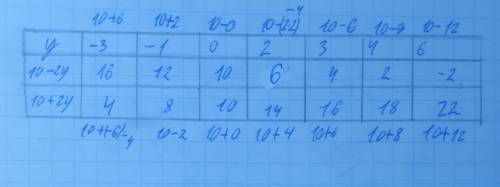 10+6 10+2 10-0 10-(22) -4 10-6 10-8 10-12
y -3 -1 0 2 3 4 6
10-2y 16 12 10 6 4 2 -2
10+2y 4 8 10 14 16 18 22
10+(-6)-4 10-2 10+0 10+4 10+6 10+8 10+12